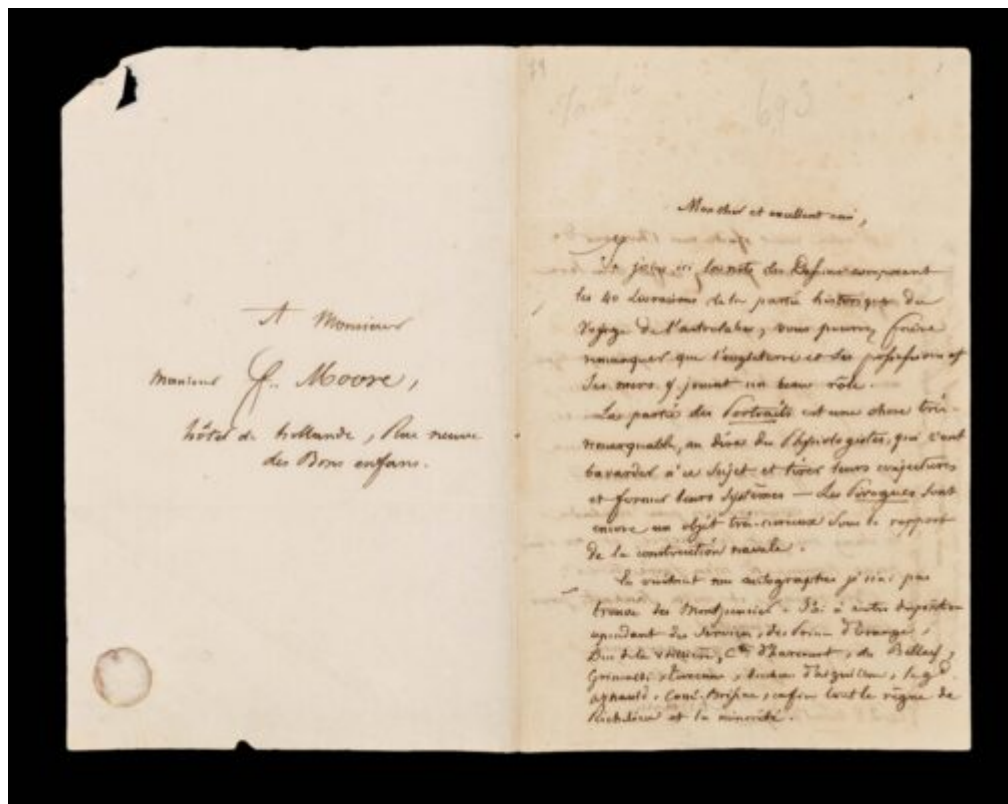 A Monsieur
Monsieur F. Moore,
hôtel de hollande, Rue neuve
des Bons enfans.
79
693
Mon cher et excellent ami,
Je joins ici la note des Dessins composant
les 40 Livraisons de la partie historique du
Voyage de l'astrolabe, vous pourrez faire
remarquer que l'angleterre et ses possessions et
ses mers y jouent un beau rôle.
La partie des Portraits est une chose très-
remarquable, au dire des Physiologistes, qui vont
bavarder à ce sujet et tirer leurs conjectures
et former leurs systèmes — Les Pirogues sont
encore un objet très-curieux sous le rapport
de la construction navale.
En visitant mes autographes je n'ai pas
trouvé des Montpensier - J'ai à votre disposition
cependant des Servien, des Prince d'Orange,
Duc de la Vrillière, Cte d'harcourt, du Bellay,
Grimaldi, Turenne, d'aiguillon, le gd
arnauld, Cossé-Brissac, enfin tout le règne de
Richelieu et la minorité.